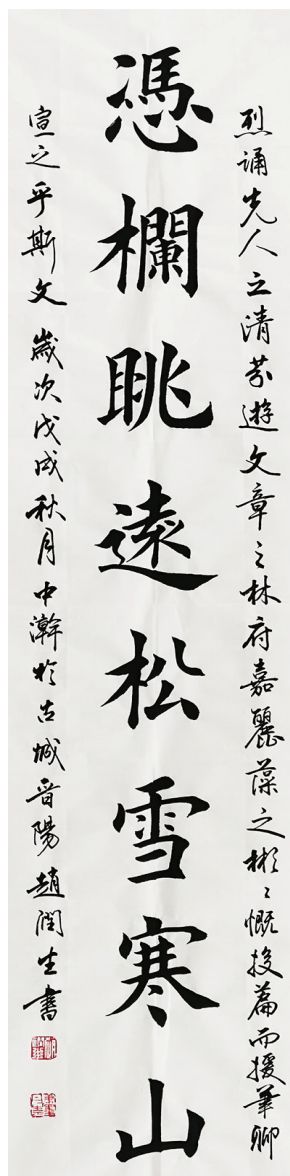 烈誦先人之清芬遊文章之林府嘉麗藻之彬彬慨投篇而援筆聊
憑欄眺遠松雪寒山
宣之乎斯文歲次戊戌秋月中澣於古城晉陽趙潤生書